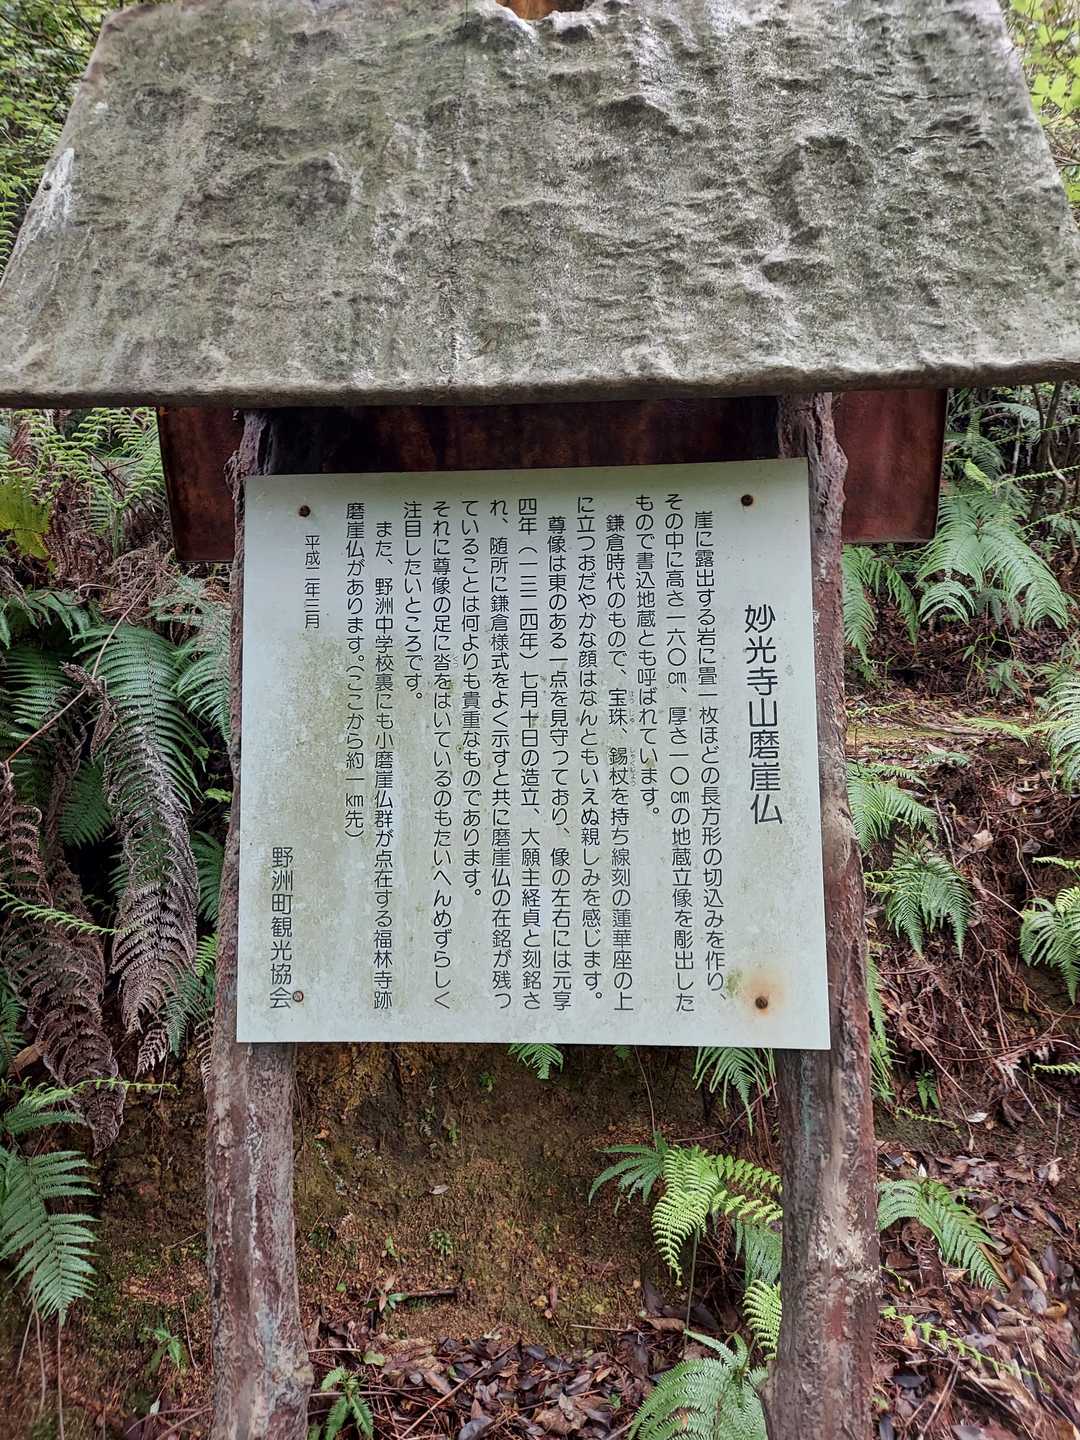 妙光寺山磨崖仏
崖に露出する岩に畳一枚ほどの長方形の切込みを作り、
その中に高さ一六〇㎝、厚さ一〇㎝の地蔵立像を彫出した
もので書込地蔵とも呼ばれています。
鎌倉時代のもので、宝珠、錫杖を持ち線刻の蓮華座の上
に立つおだやかな顔はなんともいえぬ親しみを感じます。
尊像は東のある一点を見守っており、像の左右には元享
四年（一三二四年）七月十日の造立、大願主経貞と刻銘さ
れ、随所に鎌倉様式をよく示すと共に磨崖仏の在銘が残っ
ていることは何よりも貴重なものであります。
それに尊像の足に沓をはいているのもたいへんめずらしく
注目したいところです。
また、野洲中学校裏にも小磨崖仏群が点在する福林寺跡
磨崖仏があります。（ここから約一㎞先）
平成二年三月
野洲町観光協会